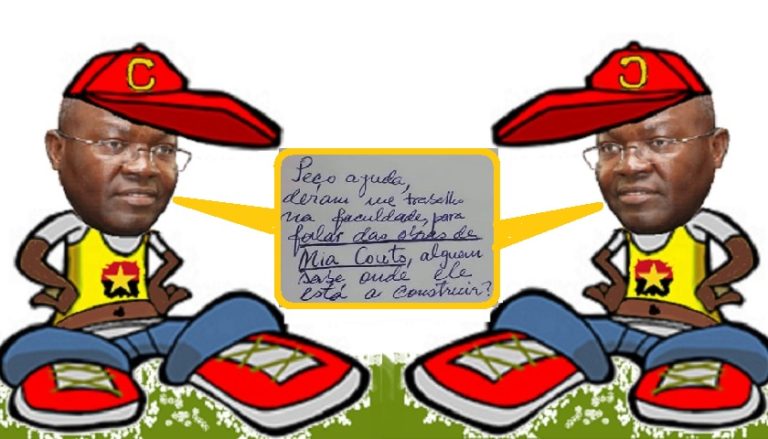 C
C
Peço ajuda,
deram me trabalho
na faculdade, para
falar das obras de
Mia Couto, alguem
sabe onde ele
está a construir?